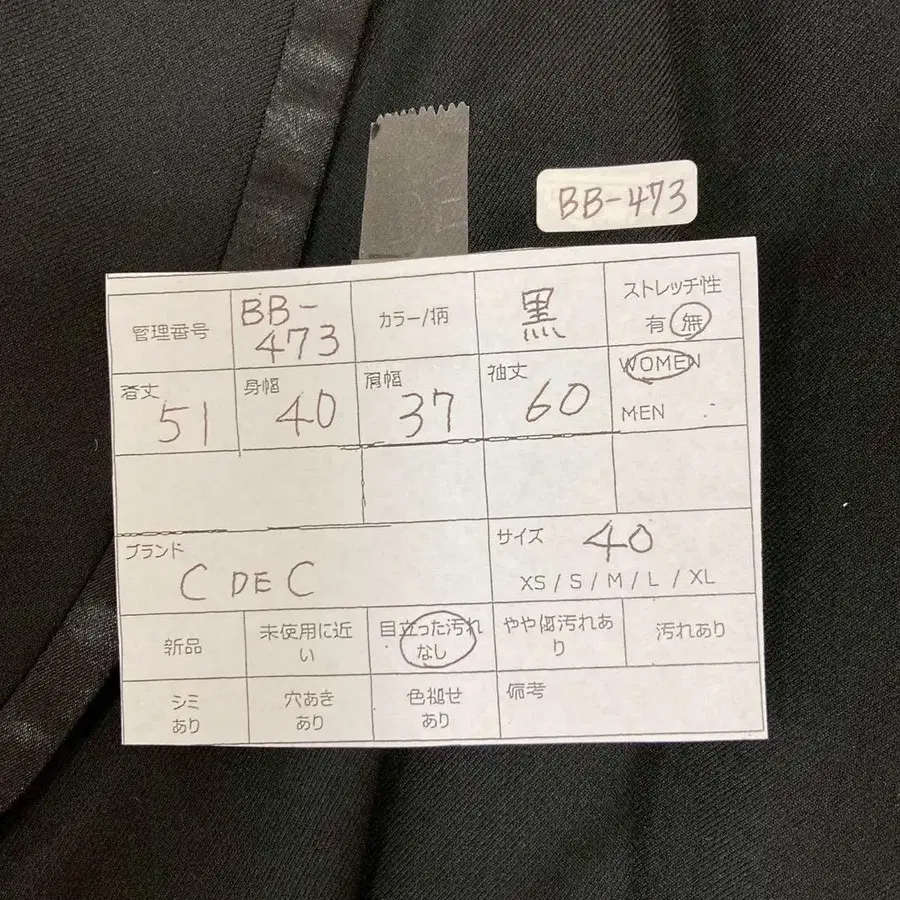 BB-473
管理番号
BB-
473
カラー/柄
黒
ストレッチ性
有 無
着丈
51
身幅
40
肩幅
37
袖丈
60
WOMEN
MEN
ブランド
C DE C
サイズ
40
XS / S / M / L / XL
新品
未使用に近
い
目立った汚れ
なし
やや傷汚れあ
り
汚れあり
シミ
あり
穴あき
あり
色褪せ
あり
備考